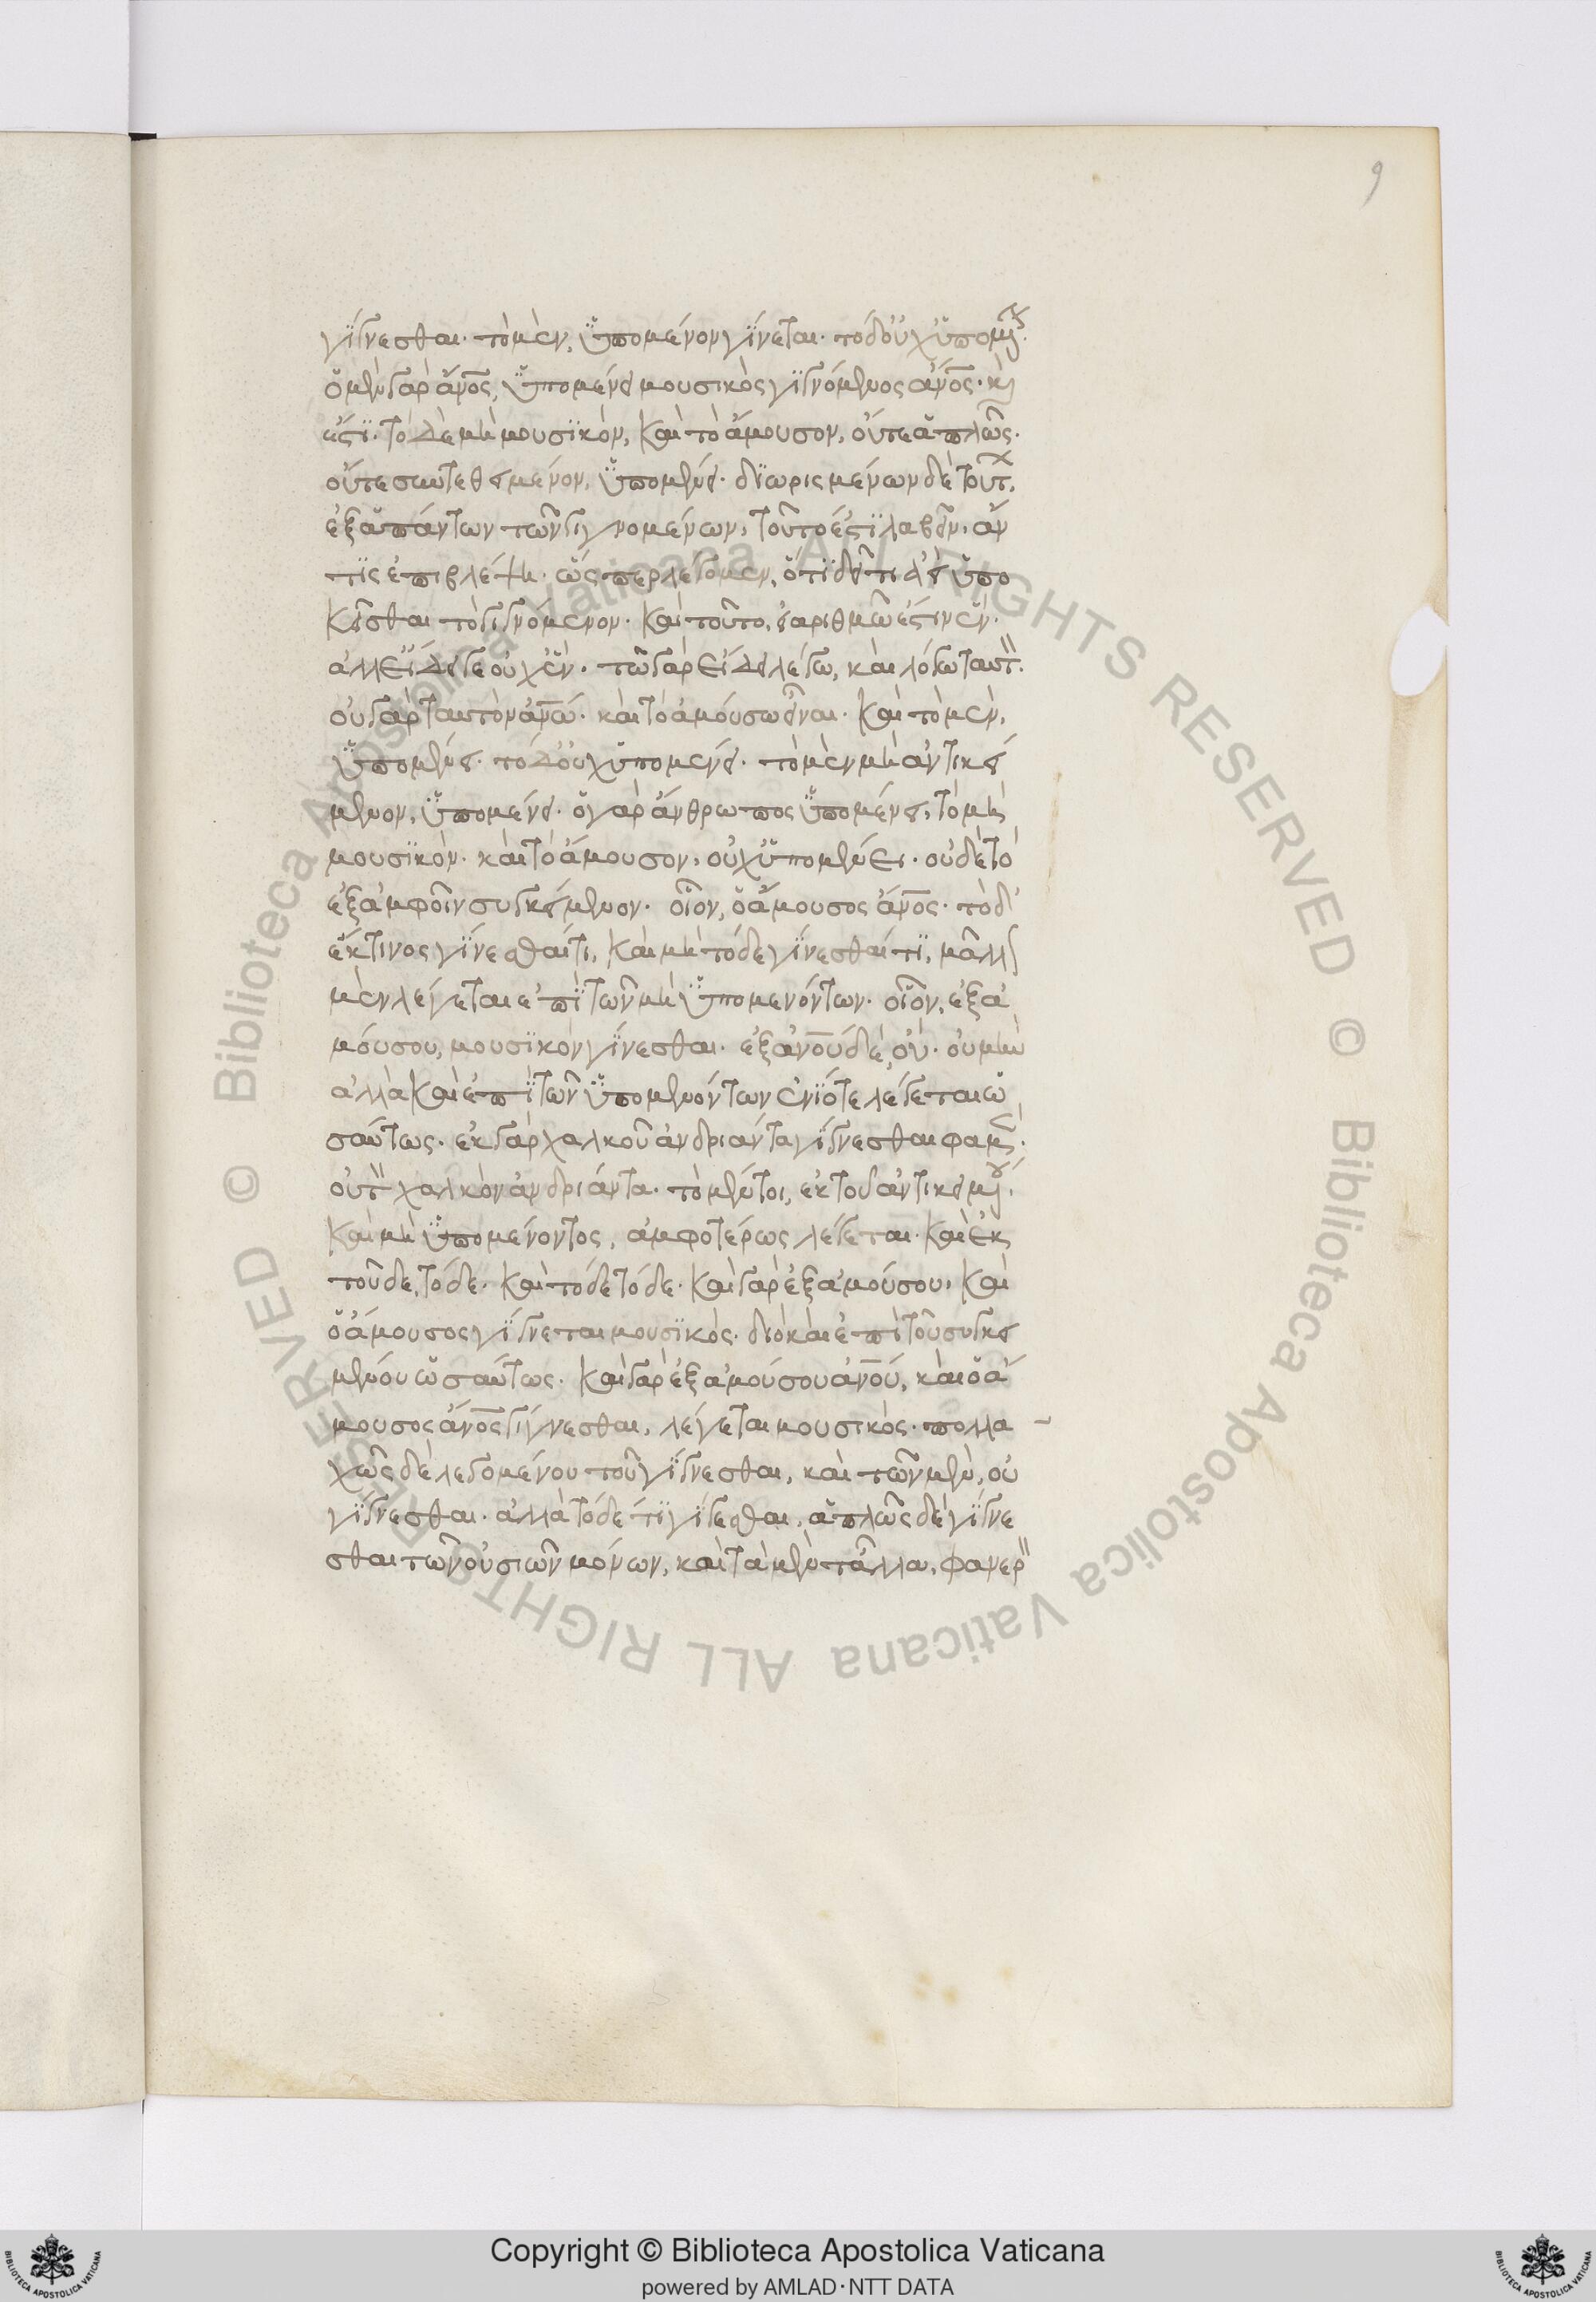 9
γίγνεσθαι· τὸ μὲν, ὑπομένον γίνεται· τὸ δ οὐχ ὑπομέν·
ὁ μὲν γὰρ ἄνος, ὑπομένει μουσικὸς γιγνόμενος ἄνος· καὶ
ἐστι· τὸ δὲ μὴ μουσικὸν, καὶ τὸ ἄμουσον, οὔτε ἁπλῶς·
οὔτε συντεθειμένον, ὑπομένει· διωρισμένων δὲ τούτ,
ἐξ ἁπάντων τῶν γιγνομένων, τοῦτο ἐστι λαβεῖν, ἄν
τις ἐπιβλέψη· ὥσπερ λέγομεν, ὅτι δεῖ τι ἀεὶ ὑπο
κεῖσθαι τὸ γιγνόμενον· καὶ τοῦτο, εἰ ἀριθμῶ ἐστιν ἕν·
ἀλλ εἴδει γε οὐχ ἕν· τῶ γὰρ εἴδει λέγω, καὶ λόγω ταυτ·
οὐ γὰρ ταυτὸν ἀνω· καὶ τὸ ἀμούσω εἶναι· καὶ τὸ μὲν,
ὑπομένει· τὸ δ οὐχ ὑπομένει· τὸ μὲν μὴ ἀντικεί
μενον, ὑπομένει· ὁ γὰρ ἄνθρωπος ὑπομένει, τὸ μὴ
μουσικὸν· καὶ τὸ ἄμουσον, οὐχ ὑπομένει· οὐδὲ τὸ
ἐξ ἀμφοῖν συγκείμενον· οἷον, ὁ ἄμουσος ἄνος· τὸ δ
ἔκ τινος γίνεσθαί τι, καὶ μὴ τόδε γίνεσθαί τι, μᾶλλ
μὲν λέγεται ἐπὶ τῶν μὴ ὑπομενόντων· οἷον, ἐξ ἀ
μούσου, μουσικὸν γίνεσθαι· ἐξ ἀνου δὲ, οὐ· οὐ μὴν
ἀλλὰ καὶ ἐπὶ τῶν ὑπομενόντων ἐνίοτε λέγεται ὡ
σαύτως· ἐκ γὰρ χαλκοῦ ἀνδριάντα γίγνεσθαι φαμὲν·
οὐ τ χαλκὸν ἀνδριάντα· τὸ μέντοι, ἐκ τοῦ ἀντικειμένου,
καὶ μὴ ὑπομένοντος, ἀμφοτέρως λέγεται· καὶ ἐκ
τοῦδε, τόδε· καὶ τόδε τόδε· καὶ γὰρ ἐξ ἀμούσου, καὶ
ὁ ἄμουσος γίγνεται μουσικὸς· διὸ καὶ ἐπὶ τοῦ συγκει
μένου ὡσαύτως· καὶ γὰρ ἐξ ἀμούσου ἀνου, καὶ ὁ ἄ
μουσος ἄνος γίγνεσθαι, λέγεται μουσικὸς· πολλα
χῶς δὲ λεγομένου τοῦ γίγνεσθαι, καὶ τῶν μὲν, οὐ
γίγνεσθαι· ἀλλὰ τόδε τι γίγεσθαι, ἁπλῶς δὲ γίγνε
σθαι τῶν οὐσιῶν μόνων, κατὰ μὲν τἆλλα, φανερ
Copyright © Biblioteca Apostolica Vaticana
powered by AMLAD·NTT DATA
© Biblioteca Apostolica Vaticana ALL RIGHTS RESERVED © Biblioteca Apostolica Vaticana ALL RIGHTS RESERVED
BIBLIOTECA APOSTOLICA VATICANA
BIBLIOTECA APOSTOLICA VATICANA